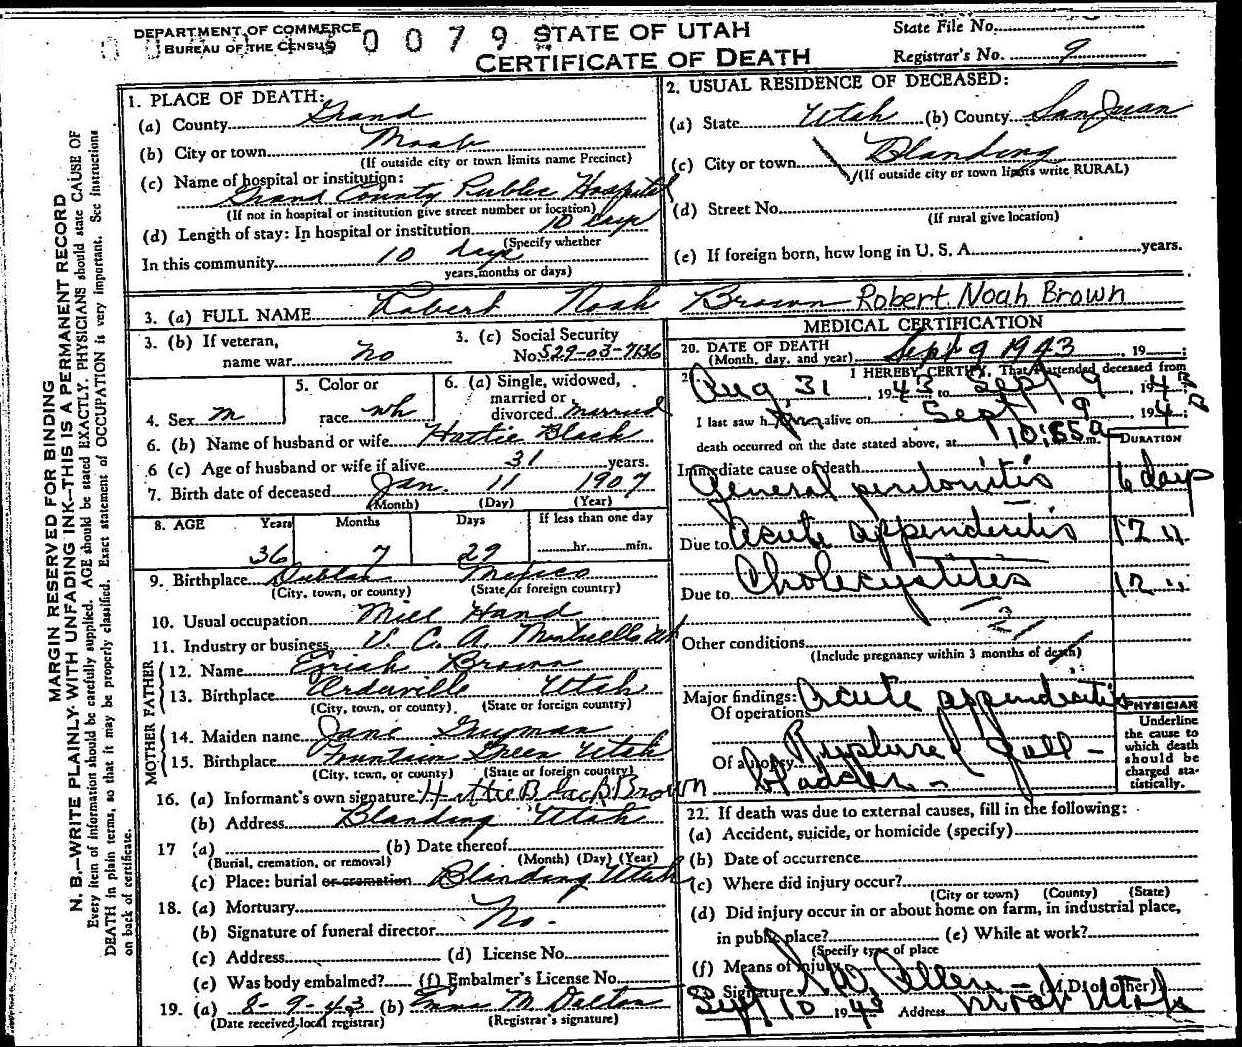 DEPARTMENT OF COMMERCE
BUREAU OF THE CENSUS
0 0 7 9 9
STATE OF UTAH
CERTIFICATE OF DEATH
State File No.
Registrar's No. 9
1. PLACE OF DEATH:
(a) County Grand
(b) City or town Moab
(If outside city or town limits name Precinct)
(c) Name of hospital or institution:
Grand County Public Hospital
(If not in hospital or institution give street number or location)
(d) Length of stay: In hospital or institution 10 days
(Specify whether
In this community 10 days
years, months or days)
2. USUAL RESIDENCE OF DECEASED:
(a) State Utah (b) County San Juan
(c) City or town Blanding
(If outside city or town limits write RURAL)
(d) Street No.
(If rural give location)
(e) If foreign born, how long in U. S. A. years.
3. (a) FULL NAME Robert Noah Brown Robert Noah Brown
3. (b) If veteran,
name war no
3. (c) Social Security
No. 529-03-7136
4. Sex m
5. Color or
race wh
6. (a) Single, widowed,
married or
divorced married
6. (b) Name of husband or wife Hattie Black
6 (c) Age of husband or wife if alive 31 years.
7. Birth date of deceased Jan. 11 1907
(Month) (Day) (Year)
8. AGE Years Months Days If less than one day
36 7 29 hr. min.
9. Birthplace Dublan Mexico
(City, town, or county) (State or foreign country)
10. Usual occupation Mill Hand
11. Industry or business V. C. A. Monticello Ut
FATHER
12. Name Brown
13. Birthplace Orderville Utah
(City, town, or county) (State or foreign country)
MOTHER
14. Maiden name Jane Guyman
15. Birthplace Fountain Green Utah
(City, town, or county) (State or foreign country)
16. (a) Informant's own signature Hattie Black Brown
(b) Address Blanding Utah
17 (a) (b) Date thereof
(Burial, cremation, or removal) (Month) (Day) (Year)
(c) Place: burial or cremation Blanding Utah
18. (a) Mortuary
(b) Signature of funeral director No.
(c) Address (d) License No.
(e) Was body embalmed? (f) Embalmer's License No.
19. (a) 8-9-43 (b) M. Dalton
(Date received local registrar) (Registrar's signature)
MEDICAL CERTIFICATION
20. DATE OF DEATH
(Month, day, and year) Sept 9 1943, 19 ;
2 I HEREBY CERTIFY, That I attended deceased from
Aug. 31, 1943 to Sept 9, 1943
I last saw him alive on Sept 9, 194
death occurred on the date stated above, at 10:55 a m.
DURATION
Immediate cause of death
General peritonitis 6 days
Due to Acute appendicitis 12 "
Due to Cholecystites 12 "
121
Other conditions
(Include pregnancy within 3 months of death)
Major findings:
Of operations Acute appendicitis
Of autopsy Ruptured Gall-
bladder-
PHYSICIAN
Underline
the cause to
which death
should be
charged sta-
tistically.
22. If death was due to external causes, fill in the following:
(a) Accident, suicide, or homicide (specify)
(b) Date of occurrence
(c) Where did injury occur?
(City or town) (County) (State)
(d) Did injury occur in or about home on farm, in industrial place,
in public place? (e) While at work?
(Specify type of place
(f) Means of injury
Signature Allen - (M.D. or other)
Sept 10 1943 Address Moab Utah
MARGIN RESERVED FOR BINDING
N. B.—WRITE PLAINLY WITH UNFADING INK—THIS IS A PERMANENT RECORD
Every item of information should be carefully supplied. AGE should be stated EXACTLY. PHYSICIANS should state CAUSE OF
DEATH in plain terms, so that it may be properly classified. Exact statement of OCCUPATION is very important. See instructions
on back of certificate.